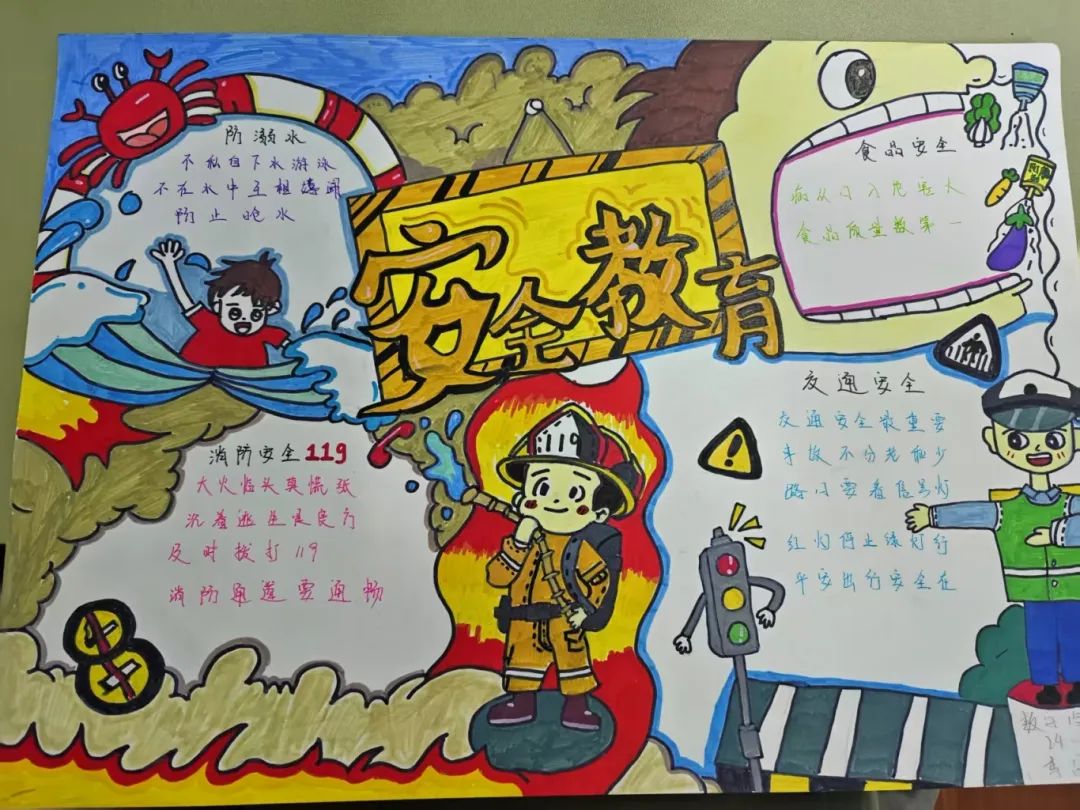 安全教育
防溺水
不私自下水游泳
不在水中互相嬉闹
防止呛水
食品安全
病从口入危害大
食品质量数第一
消防安全119
大火临头莫慌张
沉着逃生是良方
及时拨打119
消防通道要通畅
119
交通安全
交通安全最重要
事故不分老和少
路口要看信号灯
红灯停止绿灯行
平安出行安全在
24